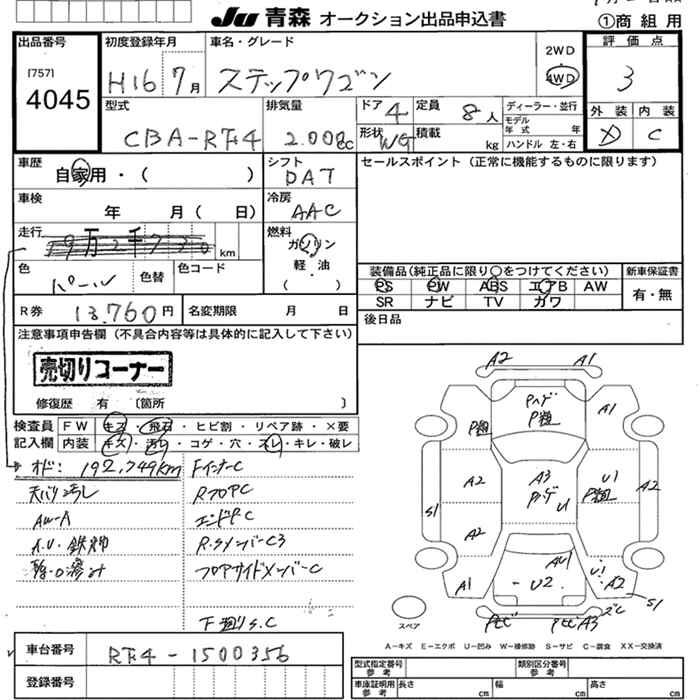 JU 青森 オークション出品申込書
①商 組 用
出品番号
[757]
4045
初度登録年月
H16 7月
車名・グレード
ステップワゴン
2WD
4WD
評 価 点
3
外 装 内 装
D C
型式
CBA-RF4
排気量
2.000cc
ドア 4
形状 WG
定員 8 人
積載 kg
ディーラー・並行
モデル年式 年
ハンドル 左・右
車歴
自家用・( )
シフト
DAT
セールスポイント(正常に機能するものに限ります)
車検
年 月( 日)
冷房
AAC
走行
19万2千730 km
燃料
ガソリン
軽・油
( )
色
パール
色替
色コード
装備品(純正品に限り○をつけてください)
新車保証書
PS PW ABS エアB AW
SR ナビ TV カワ
有・無
R券 13,760円
名変期限 月 日
後日品
注意事項申告欄(不具合内容等は具体的に記入して下さい)
売切りコーナー
修復歴 有 〔箇所 〕
検査員記入欄
FW キズ・飛石・ヒビ割・リペア跡・×要
内装 キズ・汚れ・コゲ・穴・スレ・キレ・破レ
オド: 192,749km
天バリ汚レ
AW-A
FインナーC
RフロアC
エンドPC
R.SメンバーC3
フロアサイドメンバーC
下廻りS.C
A2 A1
Pハゲ
P粗
P粗
A1
A2
A3
Pハゲ
U1
U1
P粗
A2
S1
A2
A1
AU1
U2
U1
A2
S1
A3
スペア
A−キズ E−エクボ U−凹み W−補修跡 S−サビ C−腐食 XX−交換済
車台番号
RF4-1500356
登録番号
型式指定番号 参考
類別区分番号 参考
車庫証明用 参考 長さ cm 幅 cm 高さ cm